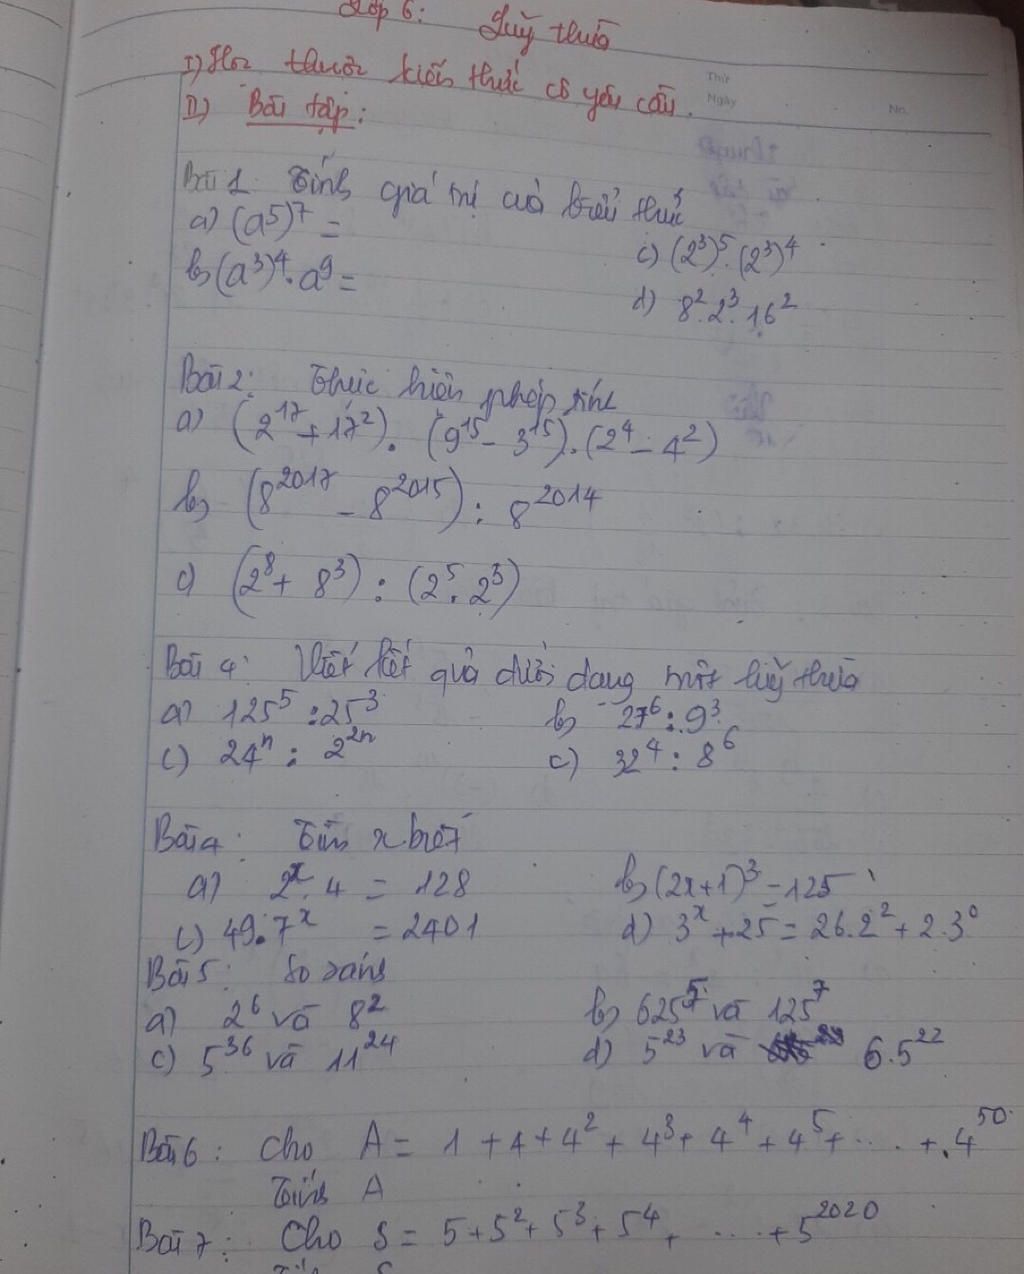 Lớp 6: Luỹ thừa
I) Học thuộc kiến thức cô yêu cầu.
II) Bài tập:
Thứ
Ngày No.
Bài 1. Tính giá trị của biểu thức
a) (a⁵)⁷ =
c) (2³)⁵.(2³)⁴
b) (a³)⁴.a⁹ =
d) 8².2³.16²
Bài 2: Thực hiện phép tính
a) (2¹⁷+17²).(9¹⁵-3¹⁵).(2⁴-4²)
b) (8²⁰¹⁷-8²⁰¹⁵):8²⁰¹⁴
c) (2⁸+8³):(2⁵.2³)
Bài 4: Viết kết quả dưới dạng một luỹ thừa
a) 125⁵:25³ b) 27⁶:9³
c) 24ⁿ:2²ⁿ c) 32⁴:8⁶
Bài 4: Tìm x biết
a) 2ˣ.4 = 128 b) (2x+1)³=125
c) 49.7ˣ = 2401 d) 3ˣ+25=26.2²+2.3⁰
Bài 5: So sánh
a) 2⁶ và 8² b) 625⁵ và 125⁷
c) 5³⁶ và 11²⁴ d) 5²³ và 6.5²²
Bài 6: Cho A = 1+4+4²+4³+4⁴+4⁵+....+.4⁵⁰
Tính A
Bài 7: Cho S = 5+5²+5³+5⁴+....+5²⁰²⁰